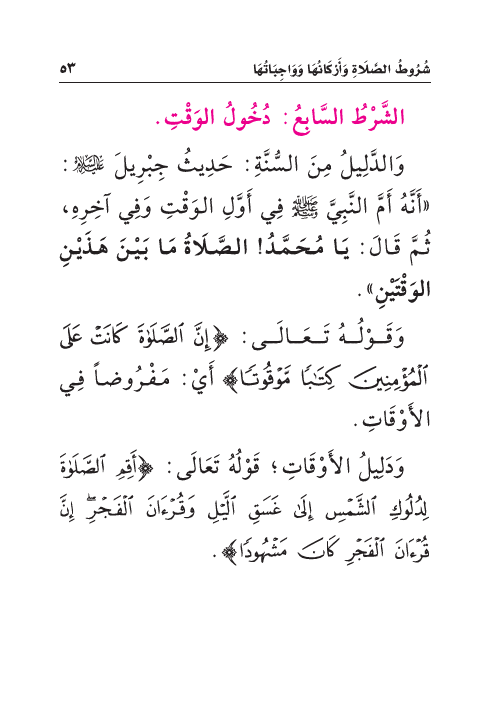 شُرُوطُ الصَّلَاةِ وَأَرْكَانُهَا وَوَاجِبَاتُهَا ٥٣
الشَّرْطُ السَّابِعُ: دُخُولُ الوَقْتِ.
وَالدَّلِيلُ مِنَ السُّنَّةِ: حَدِيثُ جِبْرِيلَ عليه السلام:
«أَنَّهُ أَمَّ النَّبِيَّ ﷺ فِي أَوَّلِ الوَقْتِ وَفِي آخِرِهِ،
ثُمَّ قَالَ: يَا مُحَمَّدُ! الصَّلَاةُ مَا بَيْنَ هَذَيْنِ
الوَقْتَيْنِ».
وَقَـوْلُـهُ تَـعَـالَـى: ﴿إِنَّ ٱلصَّلَوٰةَ كَانَتْ عَلَى
ٱلْمُؤْمِنِينَ كِتَٰبًا مَّوْقُوتًا﴾ أَيْ: مَفْرُوضاً فِي
الأَوْقَاتِ.
وَدَلِيلُ الأَوْقَاتِ؛ قَوْلُهُ تَعَالَى: ﴿أَقِمِ ٱلصَّلَوٰةَ
لِدُلُوكِ ٱلشَّمْسِ إِلَىٰ غَسَقِ ٱلَّيْلِ وَقُرْءَانَ ٱلْفَجْرِۖ إِنَّ
قُرْءَانَ ٱلْفَجْرِ كَانَ مَشْهُودًا﴾.